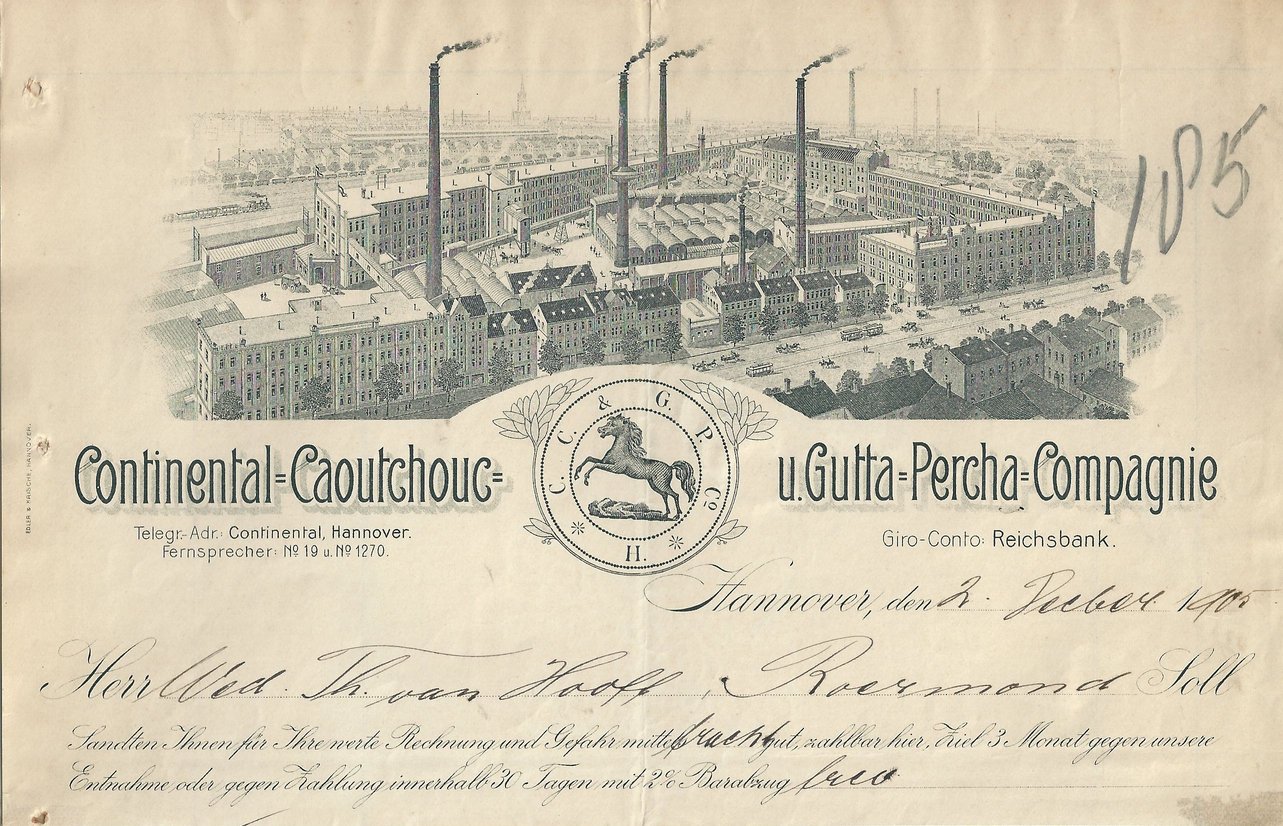 185
C. C. & G. P. Cº
H.
Continental=Caoutchouc= u. Gutta=Percha=Compagnie
Telegr.-Adr.: Continental, Hannover.
Fernsprecher: Nº 19 u. Nº 1270.
Giro-Conto: Reichsbank.
EDLER & KRISCHE, HANNOVER.
Hannover, den 2. Decber. 1905
Herr Wed. Th. van Hooff, Roermond Soll
Sandten Ihnen für Ihre werte Rechnung und Gefahr mittelst frachtgut, zahlbar hier, Ziel 3 Monat gegen unsere
Entnahme oder gegen Zahlung innerhalb 30 Tagen mit 2% Barabzug